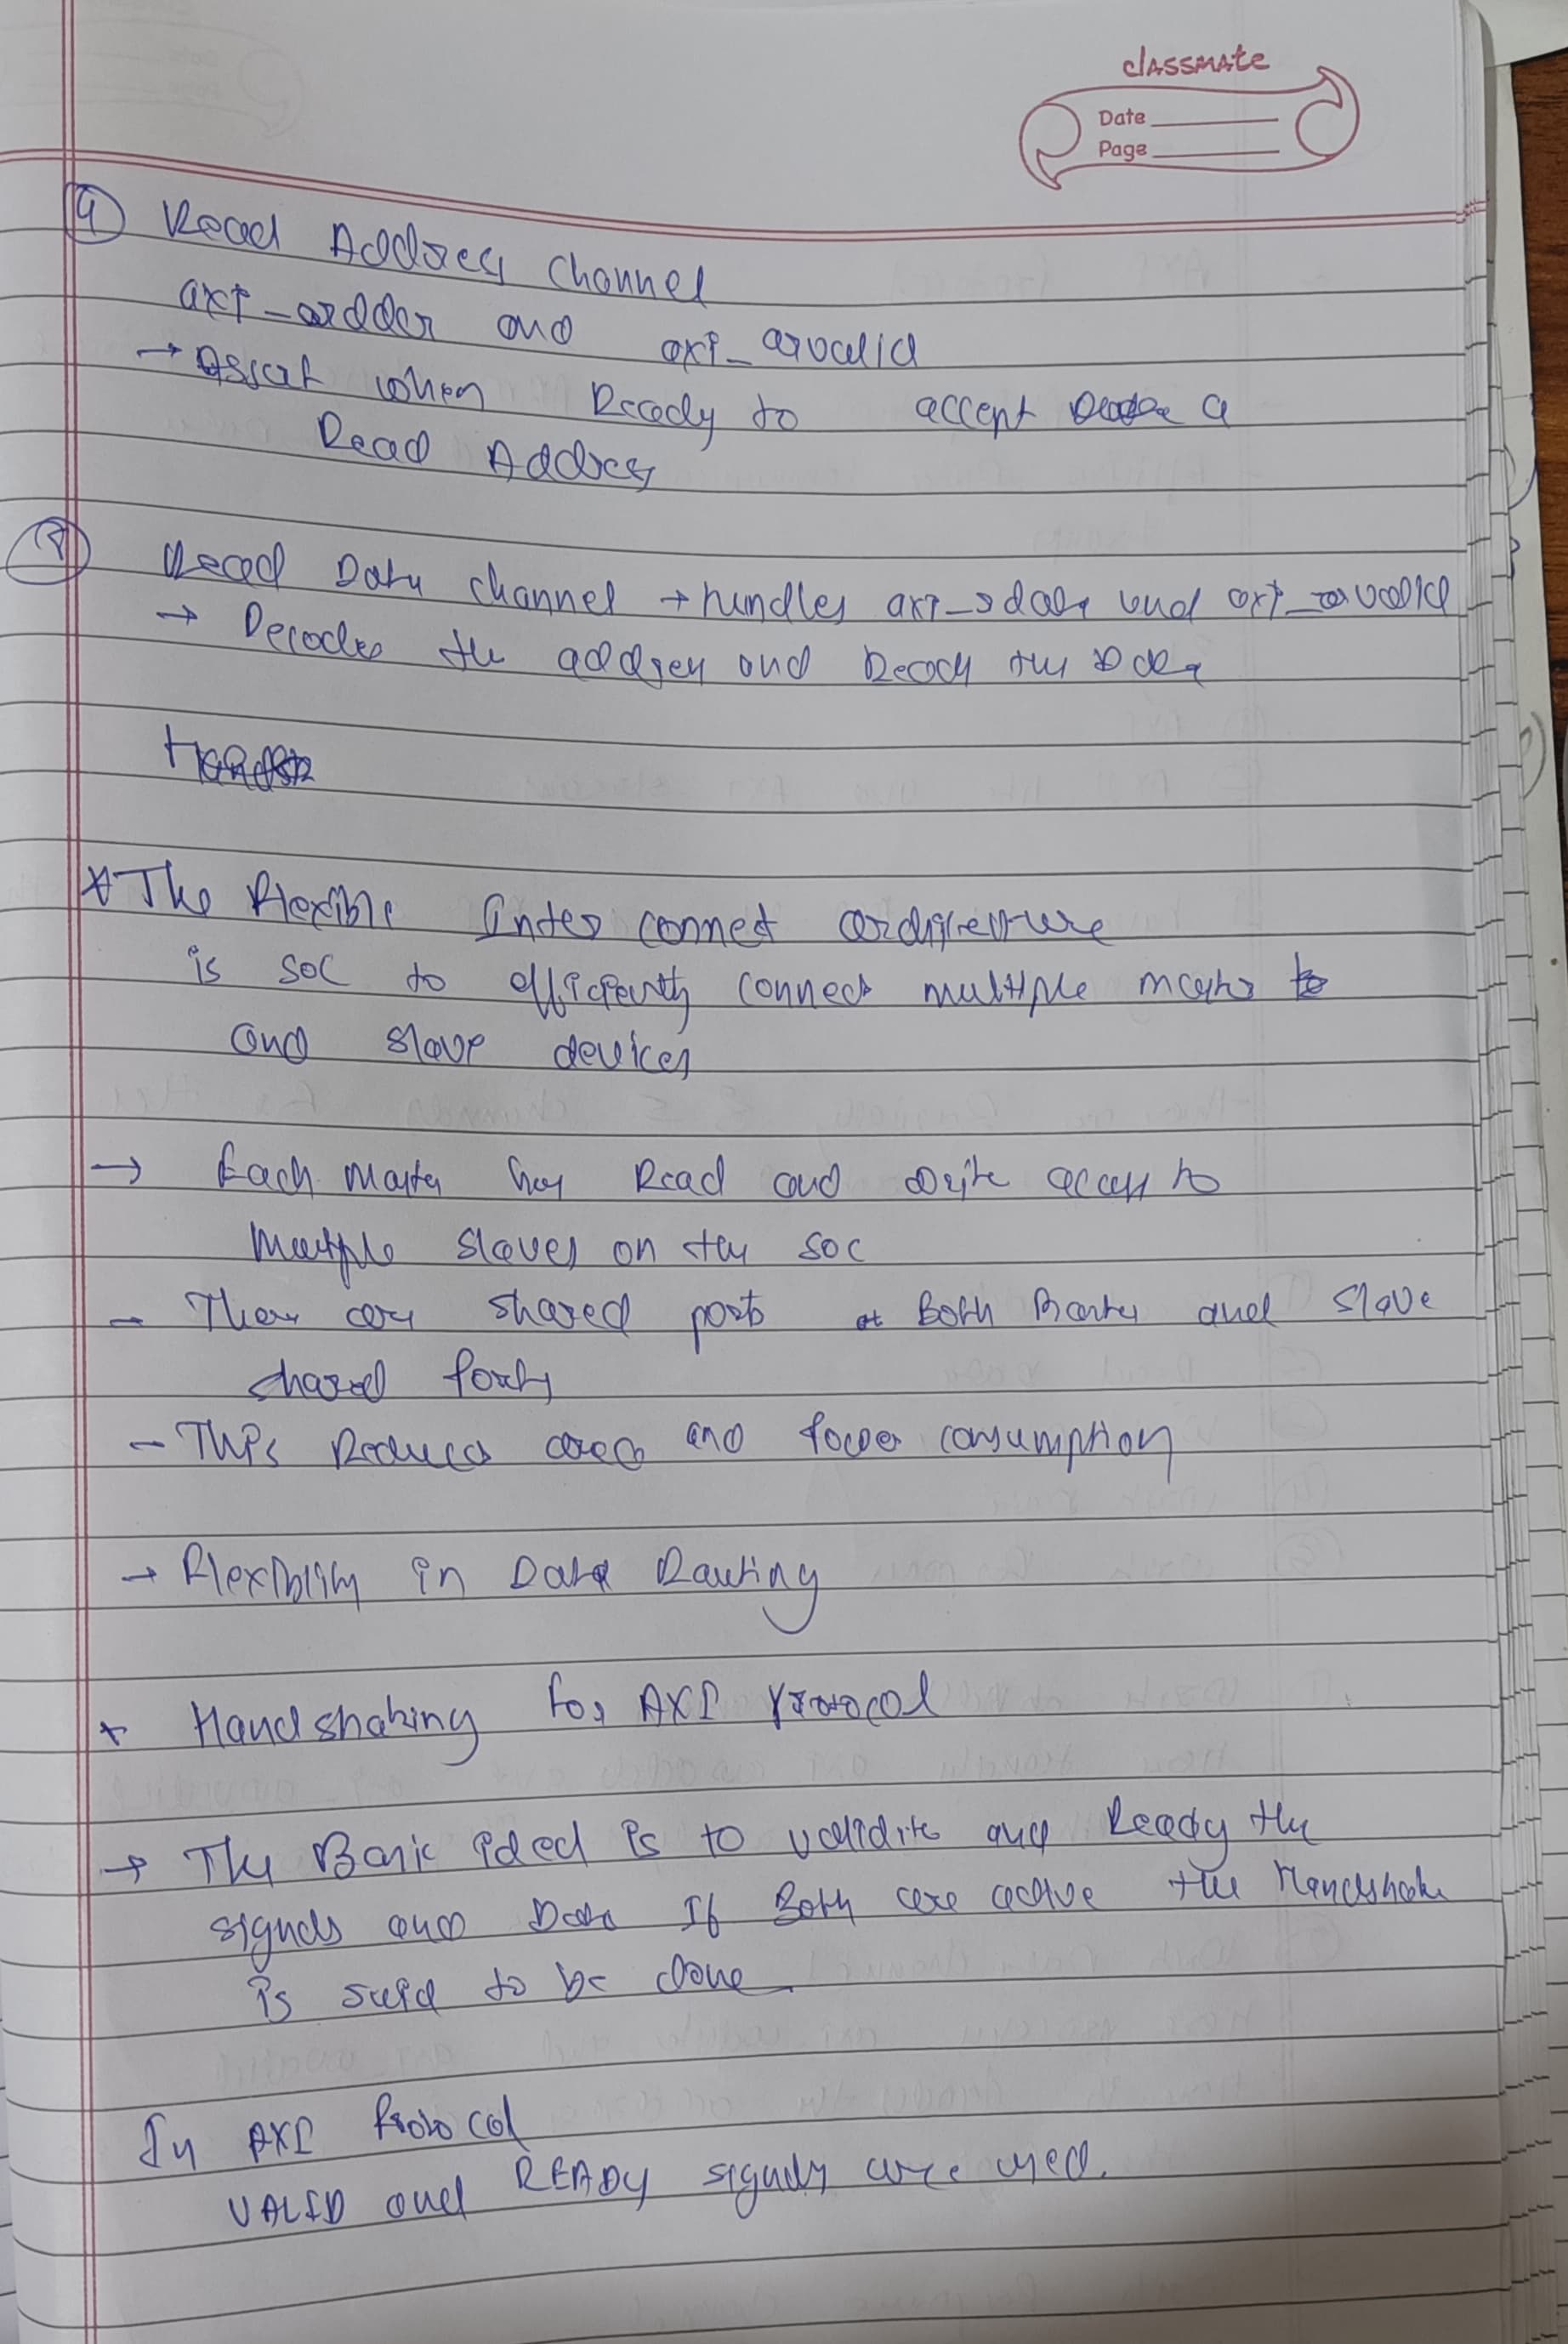 classmate
Date
Page
4 Read Address channel
axi_ardder and axi_arvalid
→ Assert when Ready to accept a
Read Address
Read Data channel → handles axi_rdata and axi_rvalid
→ Decodes the address and Ready the Data
* The Flexible Inter connect
is SOC to efficiently connect multiple
and slave devices
→ Each Master has Read and write access to
Multiple slaves on the SOC
- There are shared ports at Both Master and slave
shared ports
- This Reduces area and Power consumption
→ Flexibility in Data Routing
* Handshaking for AXI Protocol
→ The Basic idea is to validite and Ready the
signals and Data If Both are active the Handshake
is said to be done.
In AXI Protocol
VALID and READY signals are used.